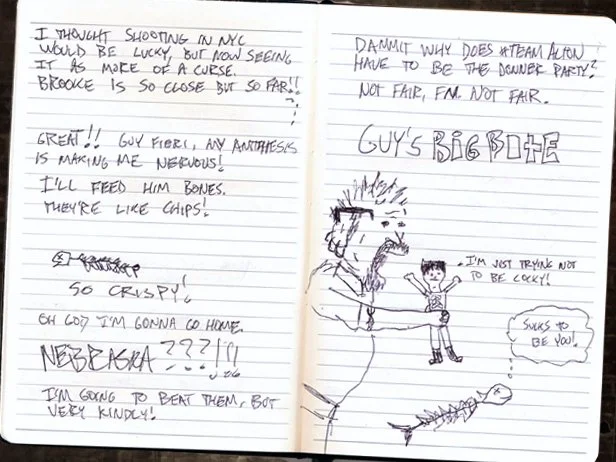 I THOUGHT SHOOTING IN NYC
WOULD BE LUCKY, BUT NOW SEEING
IT AS MORE OF A CURSE.
BROOKE IS SO CLOSE BUT SO FAR!!
GREAT!! GUY FIERI, MY ANTITHESIS
IS MAKING ME NERVOUS!
I'LL FEED HIM BONES.
THEY'RE LIKE CHIPS!
SO CRISPY!
OH GOD I'M GONNA GO HOME.
NEBRASKA???!!!
I'M GOING TO BEAT THEM, BUT
VERY KINDLY!
DAMMIT WHY DOES #TEAM ALTON
HAVE TO BE THE DONNER PARTY?
NOT FAIR, I'M NOT FAIR.
GUY'S BIG BITE
I'M JUST TRYING NOT
TO BE COCKY!
SUCKS TO
BE YOU!